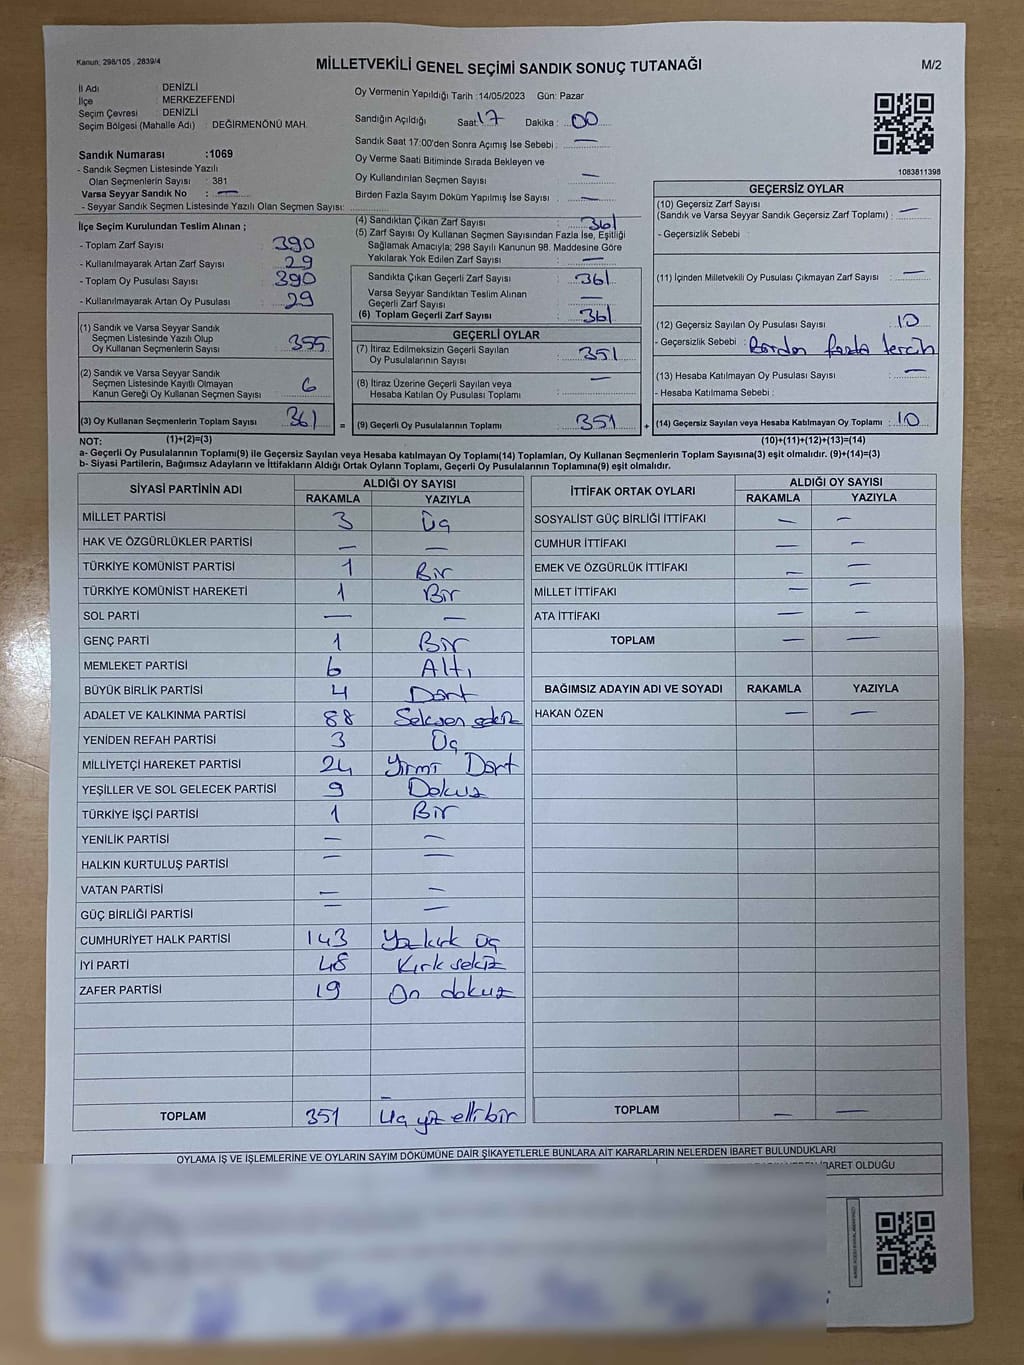 Kanun: 298/105 , 2839/4
MİLLETVEKİLİ GENEL SEÇİMİ SANDIK SONUÇ TUTANAĞI
M/2
İl Adı : DENİZLİ
İlçe : MERKEZEFENDİ
Seçim Çevresi : DENİZLİ
Seçim Bölgesi (Mahalle Adı) : DEĞİRMENÖNÜ MAH.
Sandık Numarası :1069
- Sandık Seçmen Listesinde Yazılı
Olan Seçmenlerin Sayısı : 381
Varsa Seyyar Sandık No : —
- Seyyar Sandık Seçmen Listesinde Yazılı Olan Seçmen Sayısı:
Oy Vermenin Yapıldığı Tarih :14/05/2023 Gün: Pazar
Sandığın Açıldığı Saat: 17 Dakika : 00
Sandık Saat 17:00'den Sonra Açımış İse Sebebi : —
Oy Verme Saati Bitiminde Sırada Bekleyen ve
Oy Kullandırılan Seçmen Sayısı —
Birden Fazla Sayım Döküm Yapılmış İse Sayısı : —
1083811398
İlçe Seçim Kurulundan Teslim Alınan ;
- Toplam Zarf Sayısı : 390
- Kullanılmayarak Artan Zarf Sayısı : 29
- Toplam Oy Pusulası Sayısı : 390
- Kullanılmayarak Artan Oy Pusulası : 29
(1) Sandık ve Varsa Seyyar Sandık
Seçmen Listesinde Yazılı Olup
Oy Kullanan Seçmenlerin Sayısı : 355
(2) Sandık ve Varsa Seyyar Sandık
Seçmen Listesinde Kayıtlı Olmayan
Kanun Gereği Oy Kullanan Seçmen Sayısı : 6
(3) Oy Kullanan Seçmenlerin Toplam Sayısı : 361
(4) Sandıktan Çıkan Zarf Sayısı : 361
(5) Zarf Sayısı Oy Kullanan Seçmen Sayısından Fazla İse, Eşitliği
Sağlamak Amacıyla; 298 Sayılı Kanunun 98. Maddesine Göre
Yakılarak Yok Edilen Zarf Sayısı : —
Sandıkta Çıkan Geçerli Zarf Sayısı : 361
Varsa Seyyar Sandıktan Teslim Alınan
Geçerli Zarf Sayısı : —
(6) Toplam Geçerli Zarf Sayısı : 361
GEÇERLİ OYLAR
(7) İtiraz Edilmeksizin Geçerli Sayılan
Oy Pusulalarının Sayısı : 351
(8) İtiraz Üzerine Geçerli Sayılan veya
Hesaba Katılan Oy Pusulası Toplamı : —
= (9) Geçerli Oy Pusulalarının Toplamı : 351
GEÇERSİZ OYLAR
(10) Geçersiz Zarf Sayısı
(Sandık ve Varsa Seyyar Sandık Geçersiz Zarf Toplamı) : —
- Geçersizlik Sebebi :
(11) İçinden Milletvekili Oy Pusulası Çıkmayan Zarf Sayısı : —
(12) Geçersiz Sayılan Oy Pusulası Sayısı : 10
- Geçersizlik Sebebi : Birden fazla tercih
(13) Hesaba Katılmayan Oy Pusulası Sayısı : —
- Hesaba Katılmama Sebebi :
+ (14) Geçersiz Sayılan veya Hesaba Katılmayan Oy Toplamı : 10
NOT: (1)+(2)=(3) (10)+(11)+(12)+(13)=(14)
a- Geçerli Oy Pusulalarının Toplamı(9) ile Geçersiz Sayılan veya Hesaba katılmayan Oy Toplamı(14) Toplamları, Oy Kullanan Seçmenlerin Toplam Sayısına(3) eşit olmalıdır. (9)+(14)=(3)
b- Siyasi Partilerin, Bağımsız Adayların ve İttifakların Aldığı Ortak Oyların Toplamı, Geçerli Oy Pusulalarının Toplamına(9) eşit olmalıdır.
SİYASİ PARTİNİN ADI ALDIĞI OY SAYISI
RAKAMLA YAZIYLA
MİLLET PARTİSİ 3 Üç
HAK VE ÖZGÜRLÜKLER PARTİSİ — —
TÜRKİYE KOMÜNİST PARTİSİ 1 Bir
TÜRKİYE KOMÜNİST HAREKETİ 1 Bir
SOL PARTİ — —
GENÇ PARTİ 1 Bir
MEMLEKET PARTİSİ 6 Altı
BÜYÜK BİRLİK PARTİSİ 4 Dört
ADALET VE KALKINMA PARTİSİ 88 Seksen sekiz
YENİDEN REFAH PARTİSİ 3 Üç
MİLLİYETÇİ HAREKET PARTİSİ 24 Yirmi Dört
YEŞİLLER VE SOL GELECEK PARTİSİ 9 Dokuz
TÜRKİYE İŞÇİ PARTİSİ 1 Bir
YENİLİK PARTİSİ — —
HALKIN KURTULUŞ PARTİSİ — —
VATAN PARTİSİ — —
GÜÇ BİRLİĞİ PARTİSİ — —
CUMHURİYET HALK PARTİSİ 143 Yüzkırk üç
İYİ PARTİ 48 Kırk sekiz
ZAFER PARTİSİ 19 On dokuz
TOPLAM 351 Üç yüz elli bir
İTTİFAK ORTAK OYLARI ALDIĞI OY SAYISI
RAKAMLA YAZIYLA
SOSYALİST GÜÇ BİRLİĞİ İTTİFAKI — —
CUMHUR İTTİFAKI — —
EMEK VE ÖZGÜRLÜK İTTİFAKI — —
MİLLET İTTİFAKI — —
ATA İTTİFAKI — —
TOPLAM — —
BAĞIMSIZ ADAYIN ADI VE SOYADI RAKAMLA YAZIYLA
HAKAN ÖZEN — —
TOPLAM — —
OYLAMA İŞ VE İŞLEMLERİNE VE OYLARIN SAYIM DÖKÜMÜNE DAİR ŞİKAYETLERLE BUNLARA AİT KARARLARIN NELERDEN İBARET BULUNDUKLARI
İBARET OLDUĞU